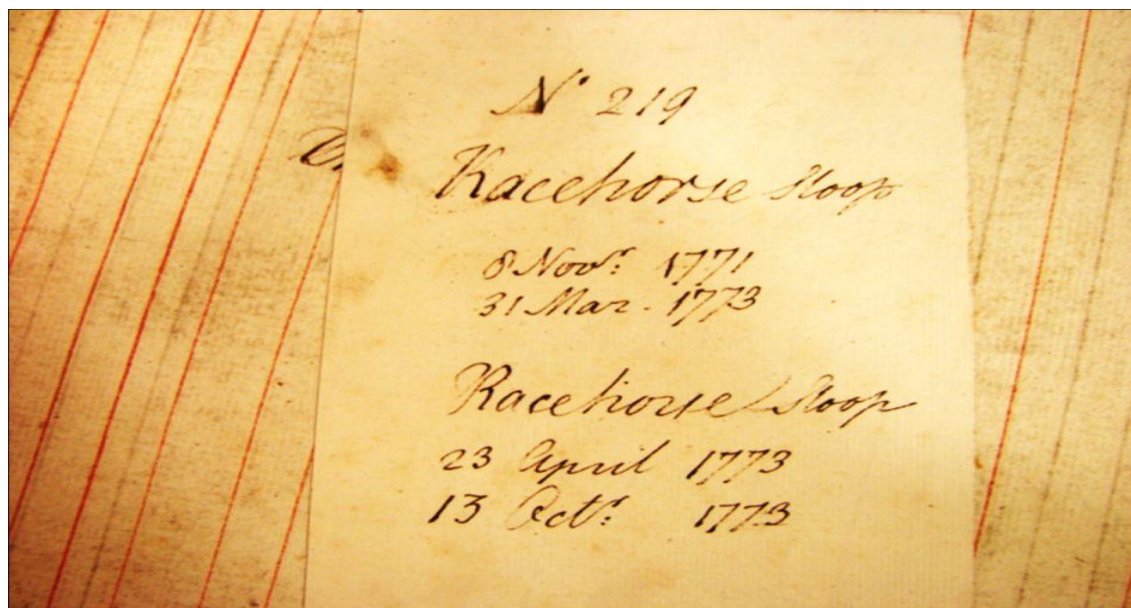 No 219
Racehorse Sloop
8 Novr. 1771
31 Mar. 1773
Racehorse Sloop
23 April 1773
13 Octr. 1773